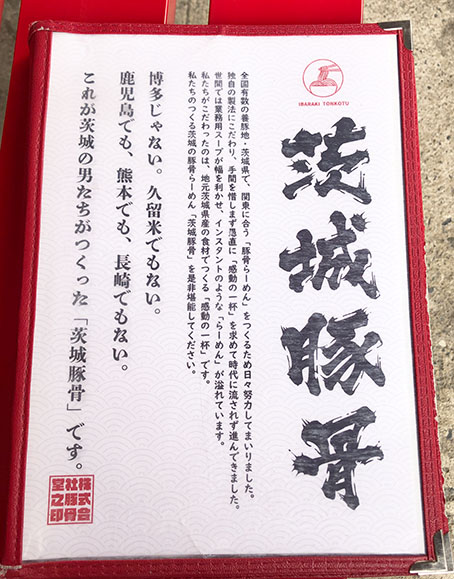 IBARAKI TONKOTU
茨城豚骨
全国有数の養豚地・茨城県で、関東に合う「豚骨らーめん」をつくるため日々努力してまいりました。
独自の製法にこだわり、手間を惜しまず愚直に「感動の一杯」を求めて時代に流されず進んできました。
世間では業務用スープが幅を利かせ、インスタントのような「らーめん」が溢れています。
私たちがこだわったのは、地元茨城県産の食材でつくる「感動の一杯」です。
私たちのつくる茨城の豚骨らーめん「茨城豚骨」を是非堪能してください。
博多じゃない。久留米でもない。
鹿児島でも、熊本でも、長崎でもない。
これが茨城の男たちがつくった「茨城豚骨」です。
株式会
社豚骨
堂之印